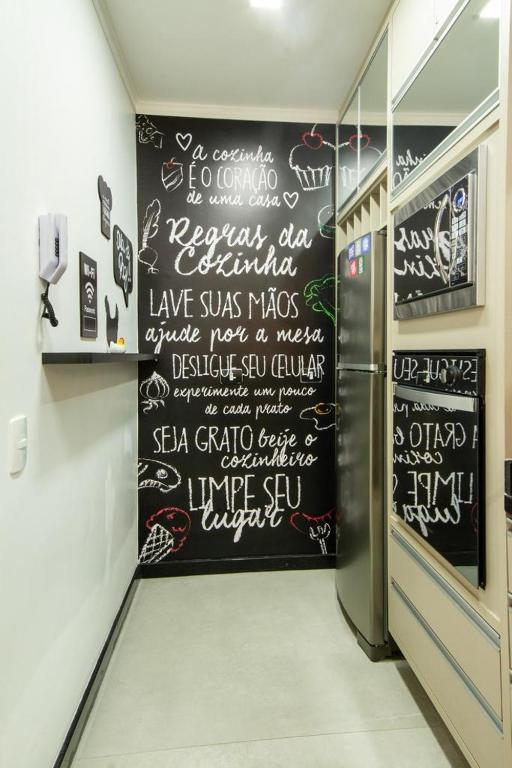 a cozinha
É O CORAÇÃO
de uma casa
Regras da
Cozinha
LAVE SUAS MÃOS
ajude por a mesa
DESLIGUE SEU CELULAR
experimente um pouco
de cada prato
SEJA GRATO beije o
cozinheiro
LIMPE SEU
lugar
Wi-Fi